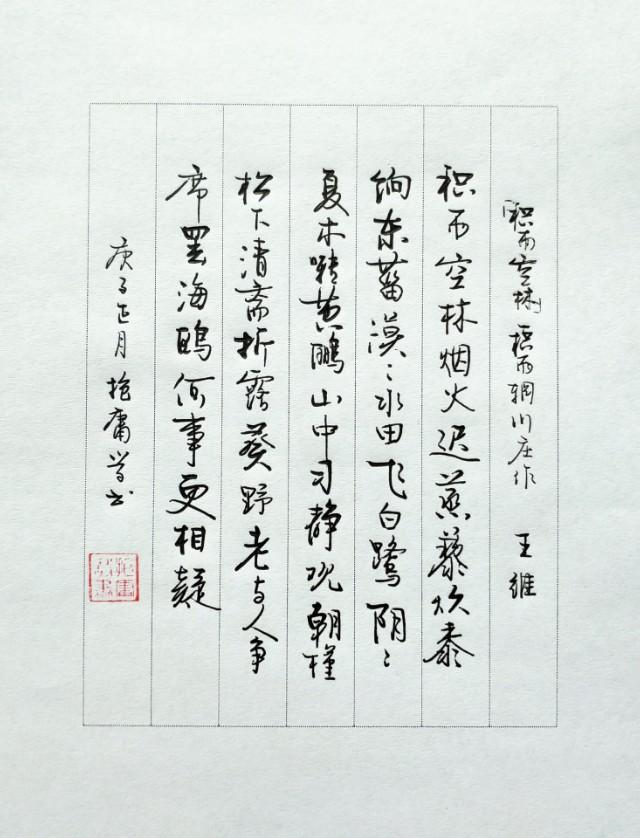 「积雨空林」积雨辋川庄作 王维
积雨空林烟火迟蒸藜炊黍
饷东菑漠〻水田飞白鹭阴〻
夏木啭黄鹂山中习静观朝槿
松下清斋折露葵野老与人争
席罢海鸥何事更相疑
庚子正月 抱庸学书